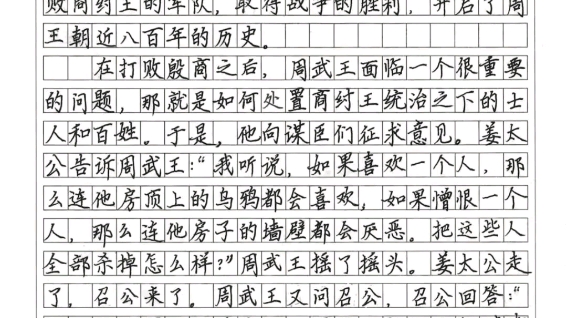 败商纣王的军队，取得战争的胜利，开启了周
王朝近八百年的历史。
在打败殷商之后，周武王面临一个很重要
的问题，那就是如何处置商纣王统治之下的士
人和百姓。于是，他向谋臣们征求意见。姜太
公告诉周武王：“我听说，如果喜欢一个人，那
么连他房顶上的乌鸦都会喜欢，如果憎恨一个
人，那么连他房子的墙壁都会厌恶。把这些人
全部杀掉怎么样？”周武王摇了摇头。姜太公走
了，召公来了。周武王又问召公，召公回答：“